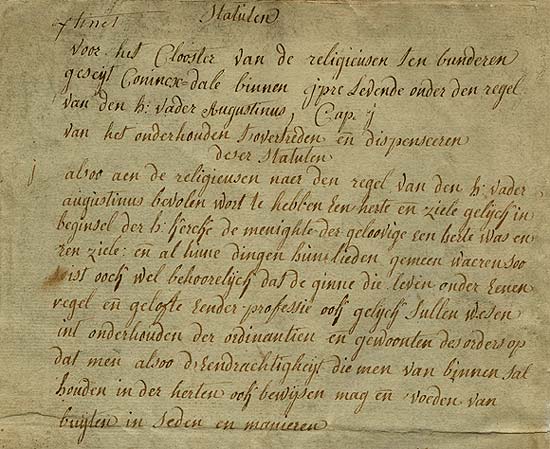 Statuten
voor het Clooster van de religieusen ten bunderen
geseyt Conincx=dale binnen jpre Levende onder den regel
van den h: vader Augustinus, Cap. j
van het onderhouden t'overtreden en dispenseeren
deser Statuten
j alsoo aen de religieusen naer den regel van den h: vader
augustinus bevolen wort te hebben Een herte en ziele gelijck in
beginsel der h: kercke de menighte der geloovige Een herte was en
Een ziele: en̄ al hune dingen hunlieden gemeen waeren, soo
ist ock wel behoorelijck dat de ginne die leven onder Eenen
regel en̄ gelofte Eender professie ock gelijck sullen wesen
int onderhouden der ordinantien en̄ gewoonten des orders op
dat men alsoo d'Eendrachtigheijt die men van binnen sal
houden in der herten ock bewijsen mag en̄ voeden van
buijten in seden en manieren